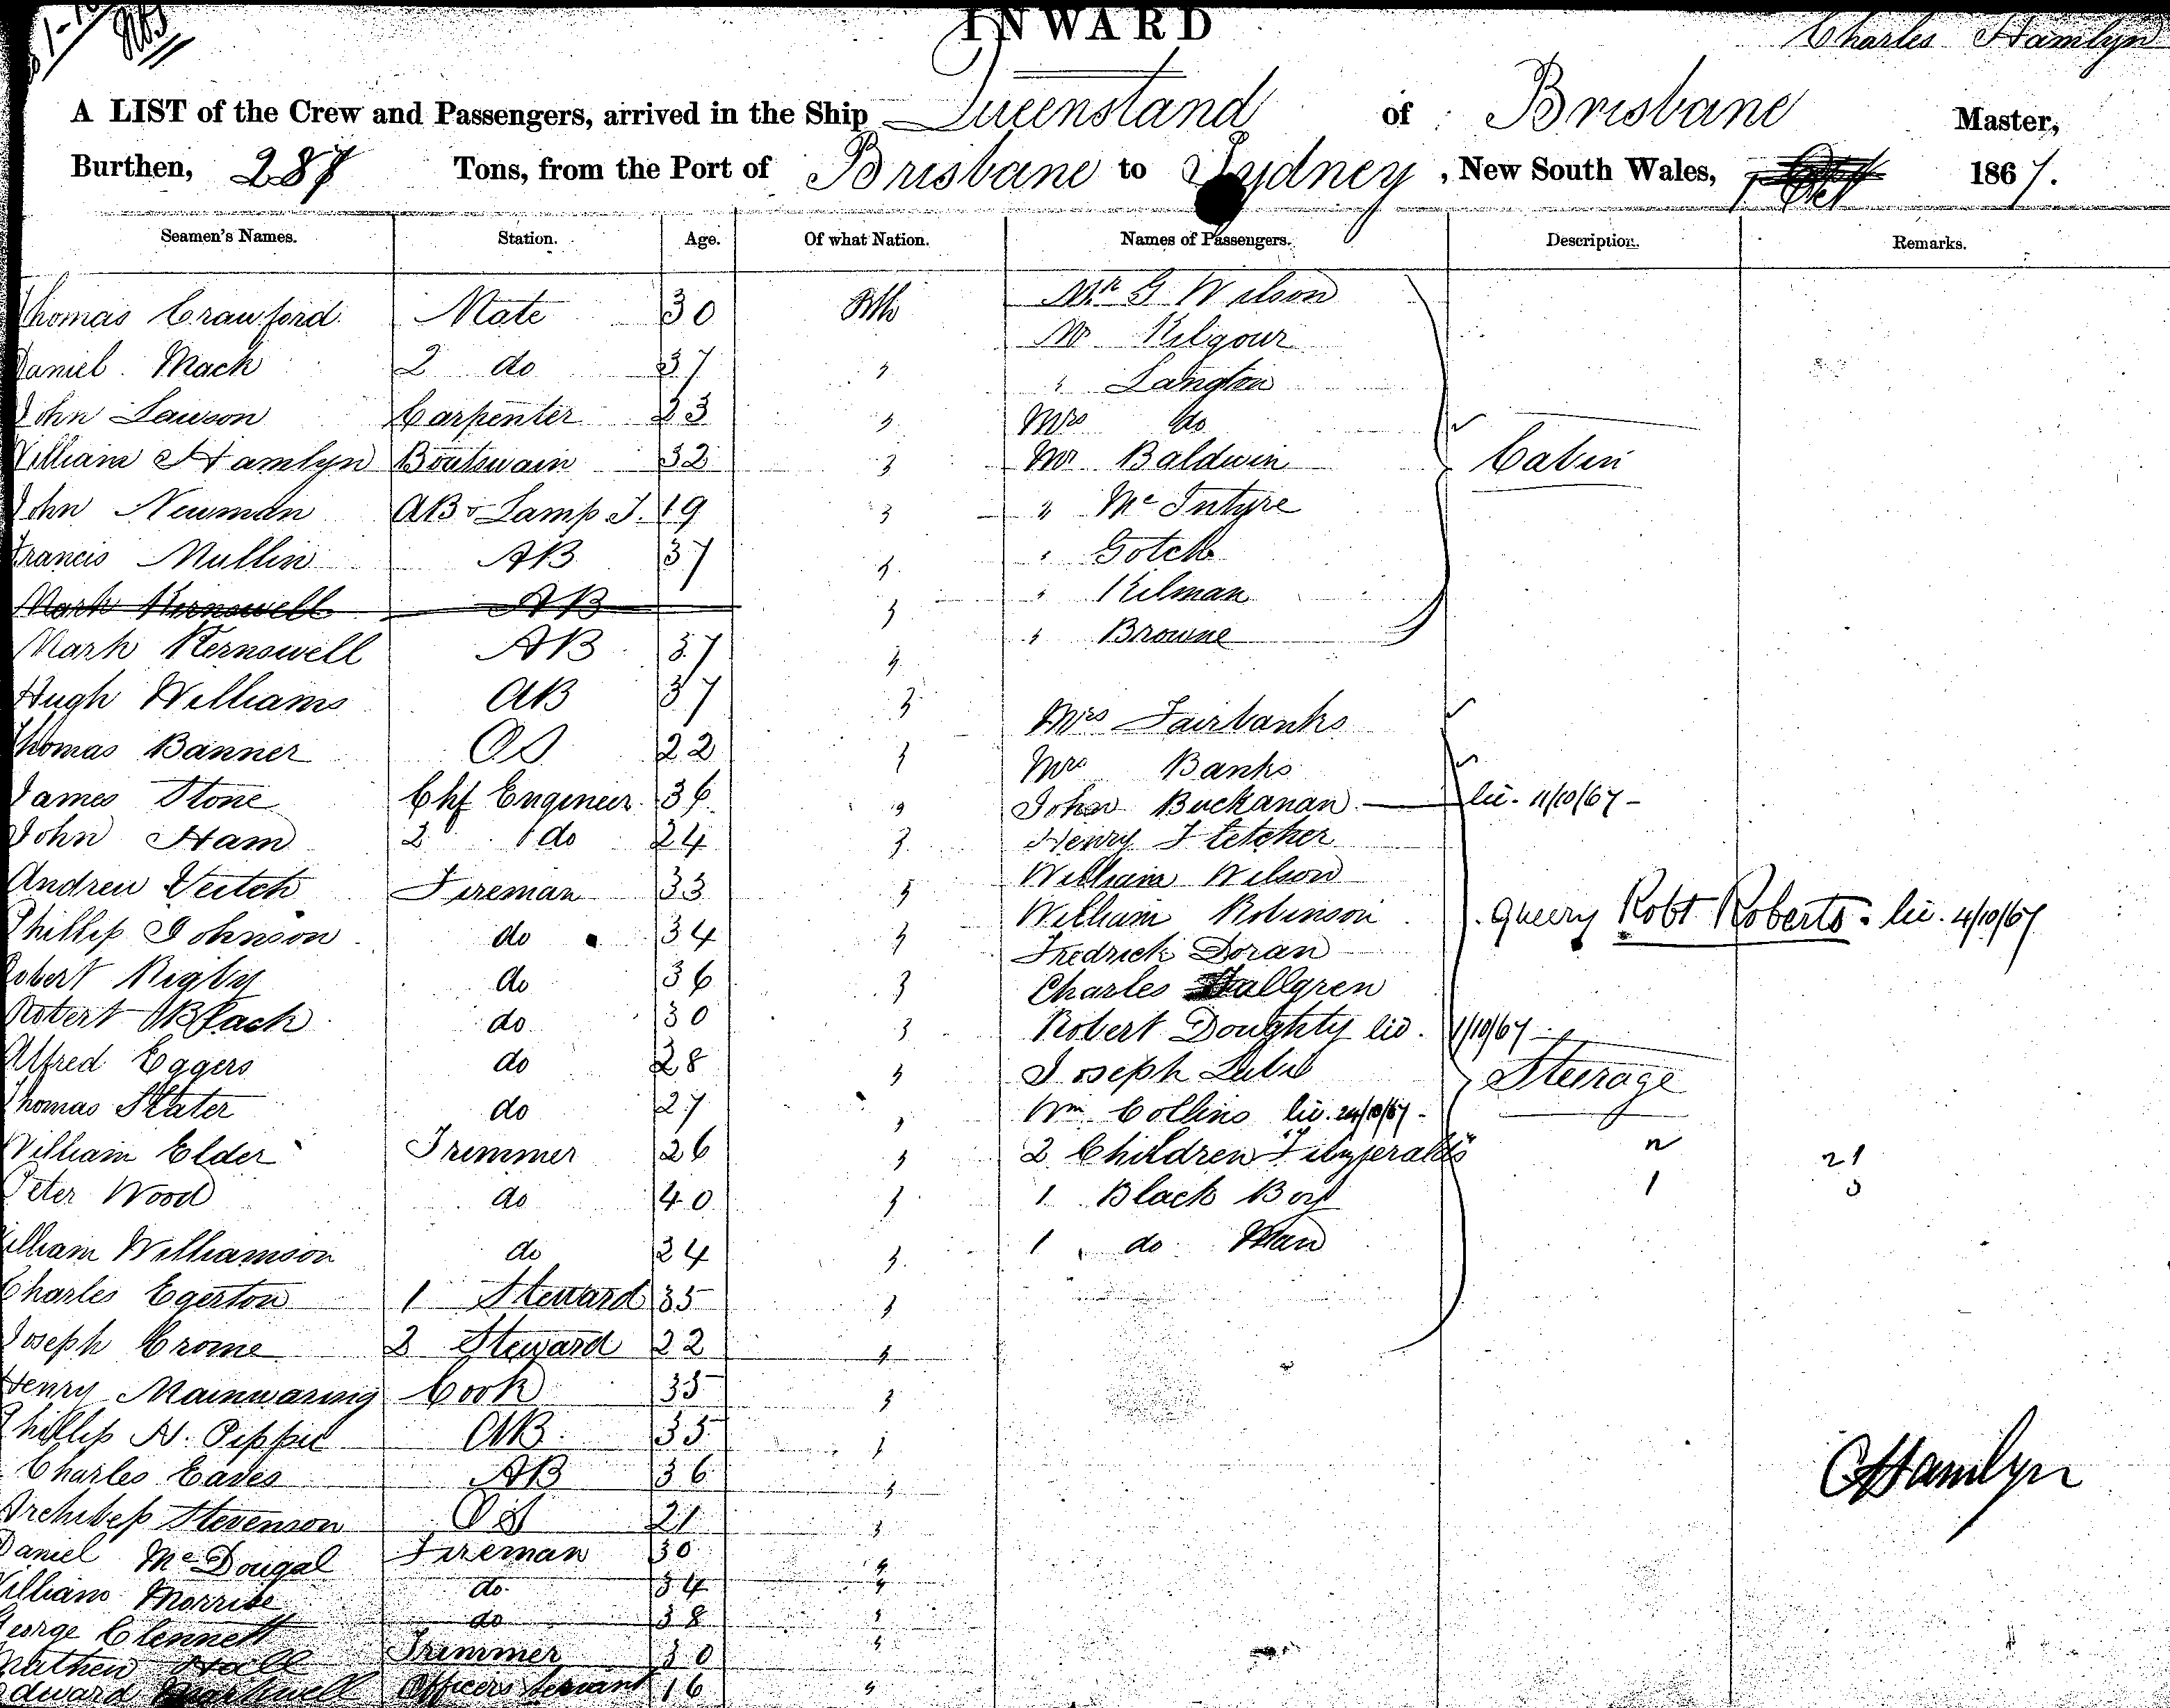 INWARD
Charles Hamlyn
A LIST of the Crew and Passengers, arrived in the Ship Queensland of Brisbane Master,
Burthen, 287 Tons, from the Port of Brisbane to Sydney, New South Wales, 1 Oct 1867.
Seamen's Names. Station. Age. Of what Nation. Names of Passengers. Description. Remarks.
Thomas Crawford Mate 30 Mr G Wilson
Mr Kilgour
Daniel Mack 2 do 37 "
" Langton
John Lawson Carpenter 23 " Mrs do
William Hamlyn Boatswain 32 " Mr Baldwin Cabin
John Newman AB & Lamp T. 19 " " McIntyre
Francis Mullin AB 37 " " Gotch
Mark Kernswell AB " " Kilman
Mark Kernowell AB 37 " " Browne
Hugh Williams AB 37 " Mrs Fairbanks
Thomas Banner OS 22 " Mrs Banks
James Stone Chf Engineer 36 " John Buckanan lic. 11/10/67
John Ham 2 do 24 " Henry Fletcher
William Wilson
Andrew Veitch Fireman 33 " William Robinson Query Robt Roberts lic. 4/10/67
Phillip Johnson do 34 " Fredrick Doran
Robert Rigby do 36 " Charles Hallgren
Robert Black do 30 " Robert Doughty lic. 1/10/67
Alfred Eggers do 28 " Joseph Steerage
Thomas Slater do 27 " Wm Collins lic. 24/10/67
William Elder Trimmer 26 " 2 Children "Fitzgeralds" 21
Peter Wood do 40 " 1 Black Boy 1
William Williamson do 24 " 1 do Man
Charles Egerton 1 Steward 35 "
Joseph Crome 2 Steward 22 "
Henry Mainwaring Cook 35 "
Phillip N. AB 35 "
Charles Eaves AB 36 "
CHamlyn
Stevenson OS 21 "
Daniel McDougal Fireman 30 "
William do 34 "
George Clennett do 38 "
Mathew Hall Trimmer 30 "
Edward Officers Servant 16 "